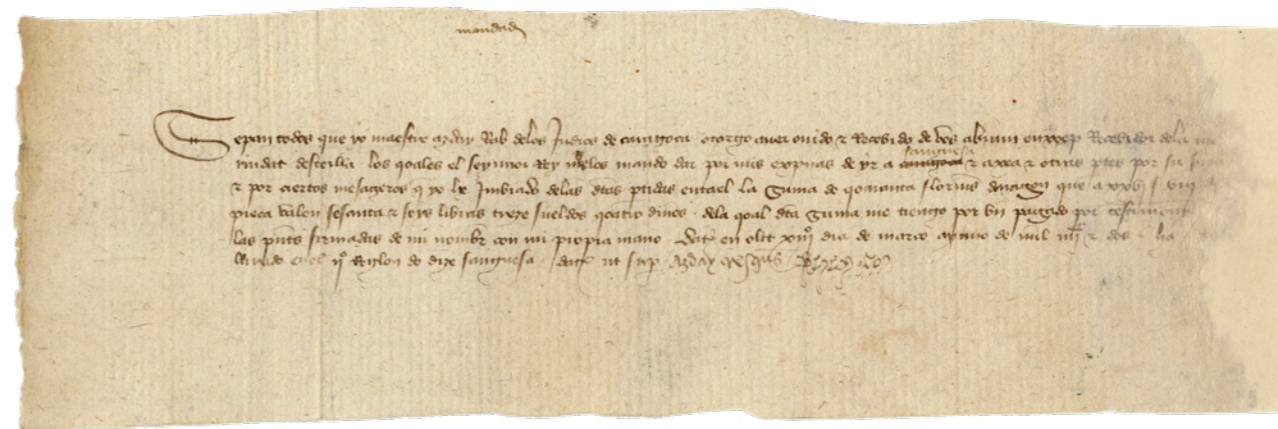 mandado
Sepan todos que yo maestro azday Rab delos Judios de caragoça otorgo auer ouido & Recebido de vos abram enxoep Recebidor dela
rindat destella los qoales el seynnor Rey melos mando dar por mis expensas de yr a caragoça sanguesa & a exea & otras ptes por su
& por ciertos mesageros q yo he Jmbiado delas dtas ptidas entael la suma de qoranta florines daragon que a xxxiij s. iiij
pieca valen sesanta & seys libras treze sueldos qoatro dineros. dela qoal dta suma me tiengo por bn pagado por testimonio
las pntes firmadas de mi nombre con mi propia mano. Dat en olit xiiij dia de março aynno de mil iiij & dos
en el ij Reglon do dize sanguesa. dat ut sup. azday cresques